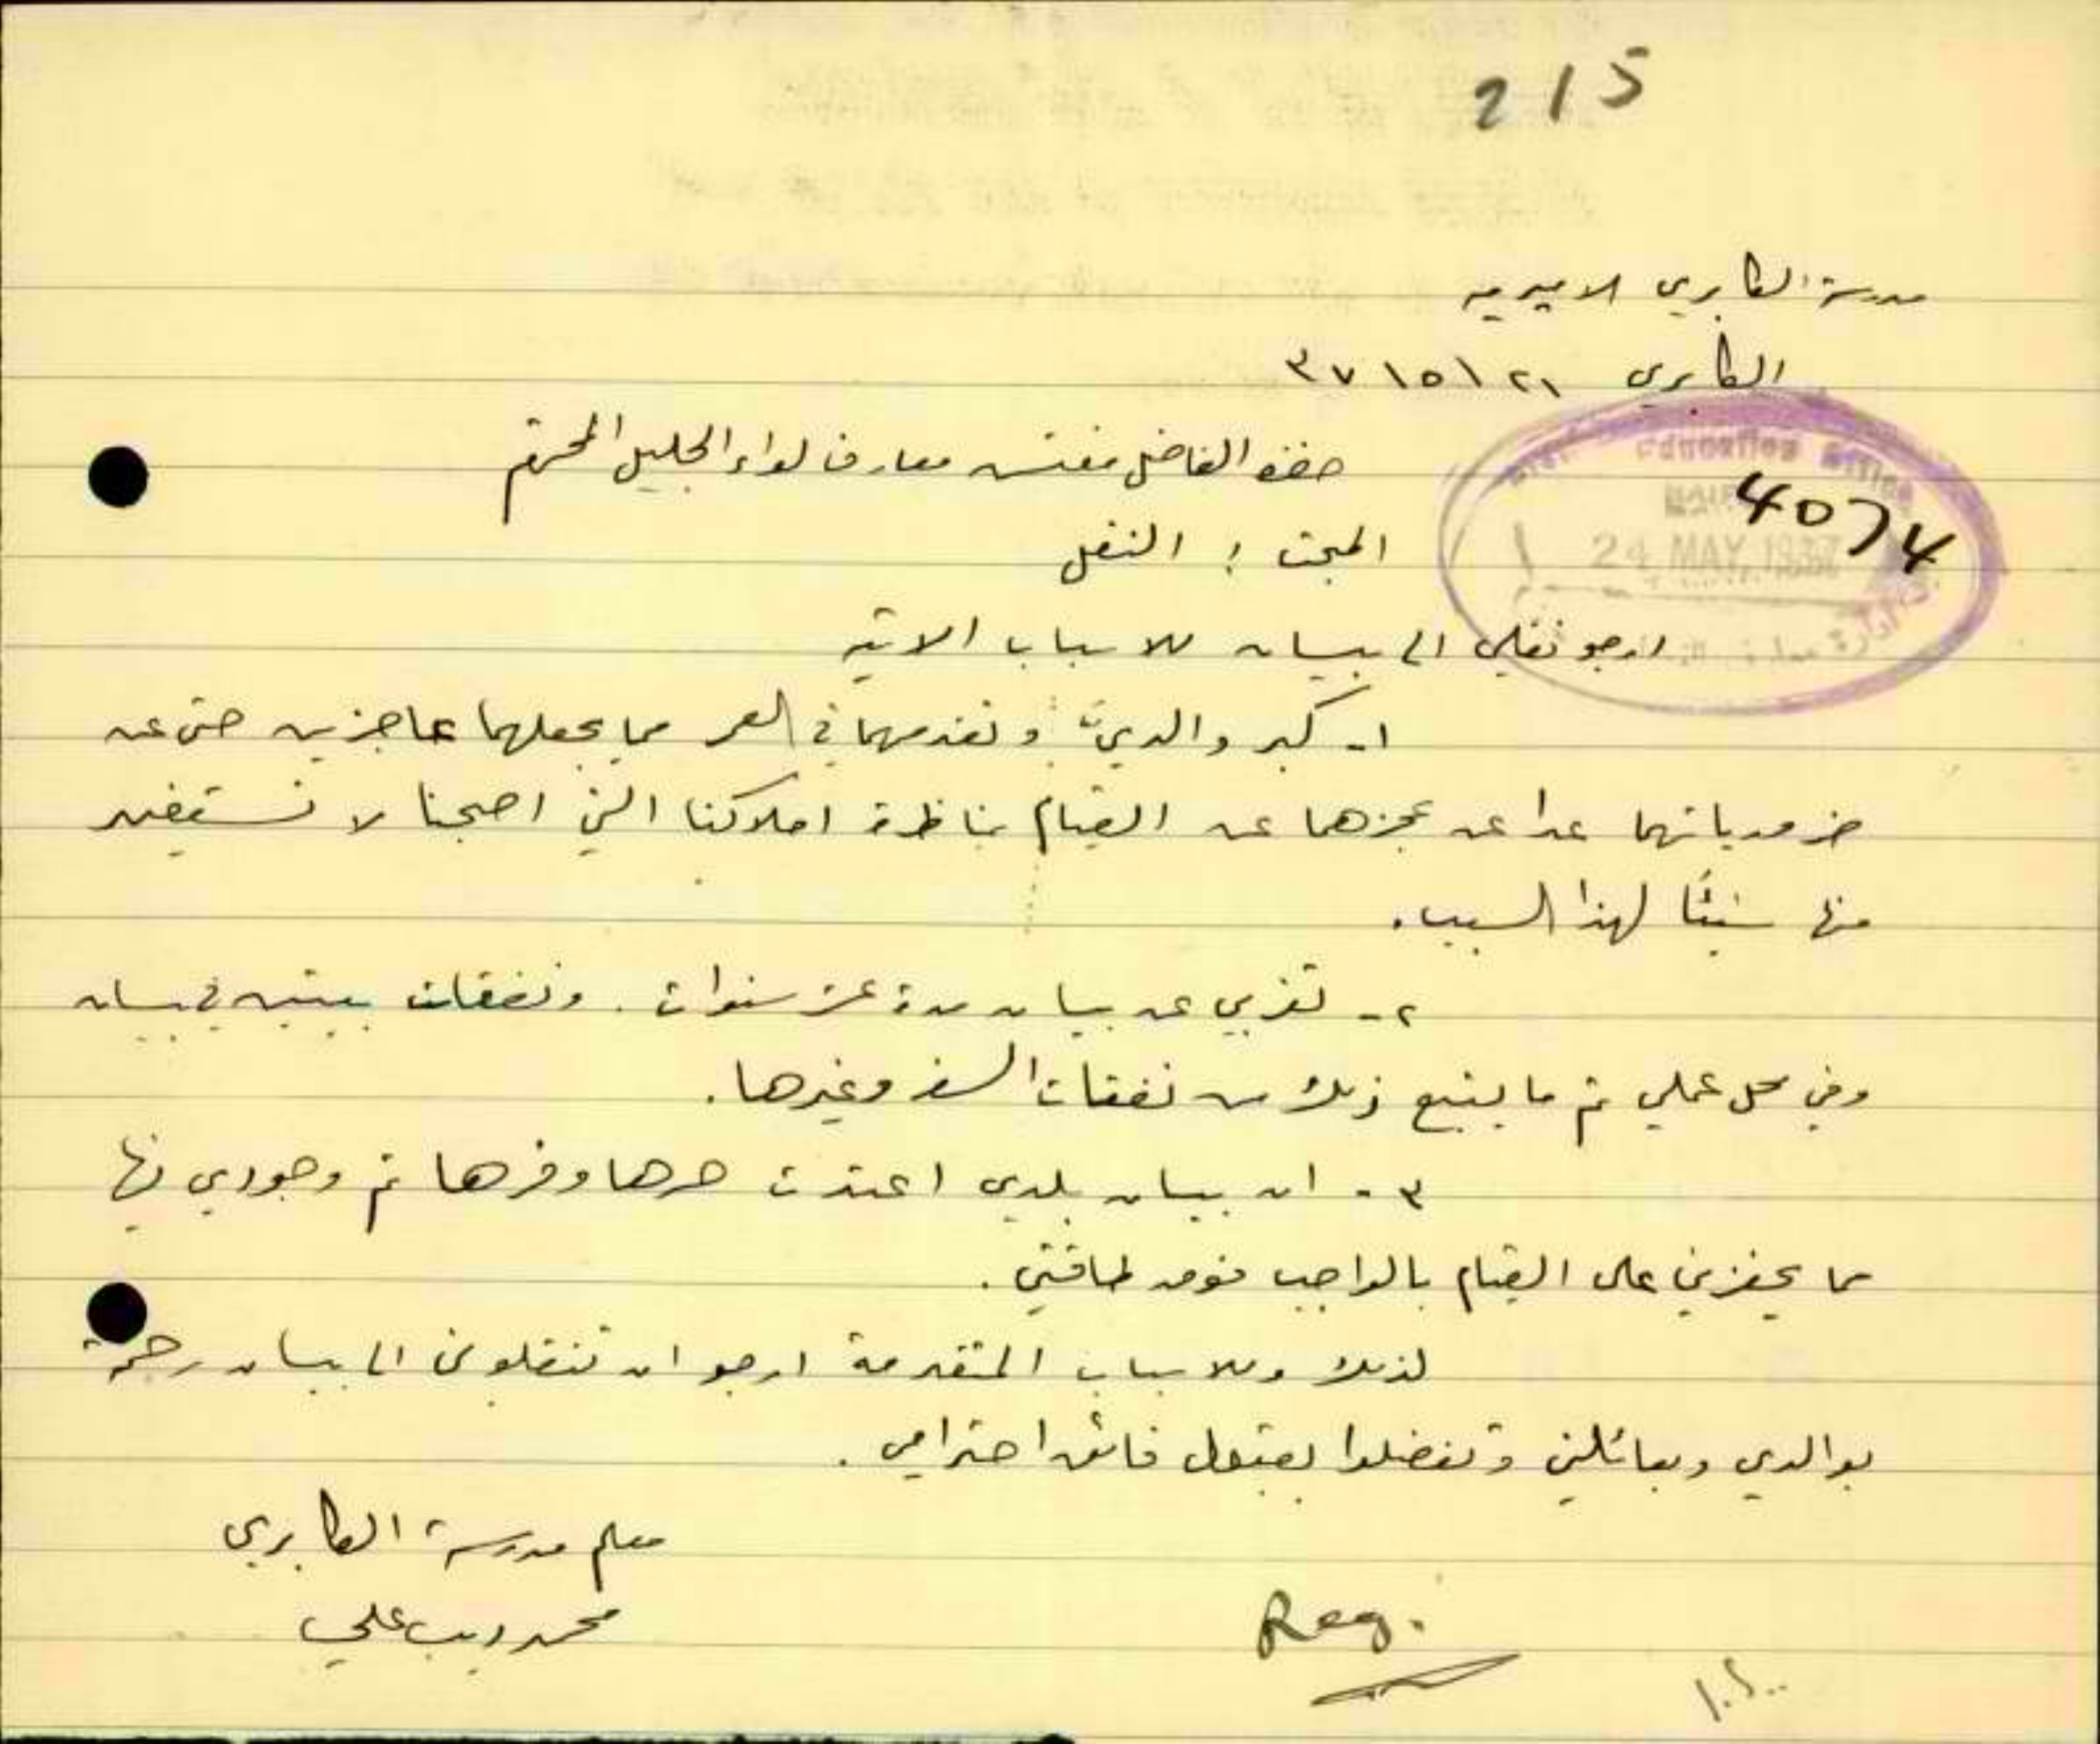 215
مدرسة الكابري الاميرية
الكابري ٢١/٥/٣٧
Education Office
4074
24 MAY 1937
حضرة الفاضل مفتش معارف لواء الجليل المحترم
المبحث : النقل
ارجو نقلي الى بيسان للاسباب الاتية
١- كبر والديّ وتقدمهما في العمر مما يجعلهما عاجزين حتى عن
ضرورياتهما عدا عن عجزهما عن القيام بمناظرة املاكنا التي اصبحنا لا نستفيد
منها شيئًا لهذا السبب.
٢- تغربي عن بيسان مدة عشر سنوات. ونفقات بيتين في بيسان
وفي محل عملي ثم ما يتبع ذلك من نفقات السفر وغيرها.
٣- ان بيسان بلدي اعتدت حرها وقرها ثم وجودي فيها
مما يحفزني على القيام بالواجب فوق طاقتي.
لذلك وللاسباب المتقدمة ارجو ان تنقلوني الى بيسان رحمة
بوالدي وبعائلتي وتفضلوا بقبول فائق احترامي.
معلم مدرسة الكابري
محمد ديب علي
Reg.